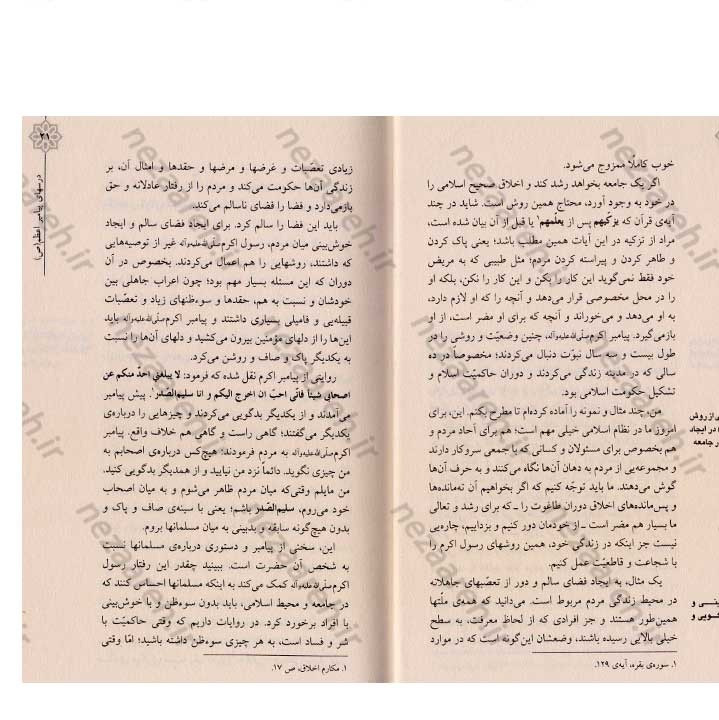 خوب کاملاً ممزوج می‌شود.
اگر یک جامعه بخواهد رشد کند و اخلاق صحیح اسلامی را
در خود به وجود آورد، محتاج همین روش است. شاید در چند
آیه‌ی قرآن که یزکّیهم پس از یعلّمهم¹ یا قبل از آن بیان شده است،
مراد از تزکیه در این آیات همین مطلب باشد؛ یعنی پاک کردن
و طاهر کردن و پیراسته کردن مردم؛ مثل طبیبی که به مریض
خود فقط نمی‌گوید این کار را بکن و این کار را نکن، بلکه او
را در محل مخصوصی قرار می‌دهد و آنچه را که او لازم دارد،
به او می‌دهد و می‌خوراند و آنچه که برای او مضر است، از او
بازمی‌گیرد. پیامبر اکرم صلی‌الله‌علیه‌وآله، چنین وضعیّت و روشی را در
طول بیست و سه سال نبوّت دنبال می‌کردند؛ مخصوصاً در ده
سالی که در مدینه زندگی می‌کردند و دوران حاکمیّت اسلام و
تشکیل حکومت اسلامی بود.
من، چند مثال و نمونه را آماده کرده‌ام تا مطرح بکنم. این، برای
امروز ما در نظام اسلامی خیلی مهم است؛ هم برای آحاد مردم و
هم بخصوص برای مسئولان و کسانی که با جمعی سروکار دارند
و مجموعه‌یی از مردم به دهان آن‌ها نگاه می‌کنند و به حرف آن‌ها
گوش می‌دهند. ما باید توجّه کنیم که اگر بخواهیم آن ته‌مانده‌ها
و پس‌مانده‌های اخلاق دوران طاغوت را ـ که برای رشد و تعالی
ما بسیار هم مضر است ـ از خودمان دور کنیم و بزداییم، چاره‌یی
نیست جز اینکه در زندگی خود، همین روشهای رسول اکرم را
با شجاعت و قاطعیّت عمل کنیم.
یک مثال، به ایجاد فضای سالم و دور از تعصّبهای جاهلانه
در محیط زندگی مردم مربوط است. می‌دانید که همه‌ی ملّتها
همین‌طور هستند و جز افرادی که از لحاظ معرفت، به سطح
خیلی بالایی رسیده باشند، وضعشان این‌گونه است که در موارد
۱. سوره‌ی بقره، آیه‌ی ۱۲۹.
ی از روش
در ایجاد
ر جامعه
ینی و
شویی و
۲۱
درسهای پیامبر اعظم(ص)
زیادی تعصّبات و غرضها و مرضها و حقدها و امثال آن، بر
زندگی آن‌ها حکومت می‌کند و مردم را از رفتار عادلانه و حق
بازمی‌دارد و فضا را فضای ناسالم می‌کند.
باید این فضا را سالم کرد. برای ایجاد فضای سالم و ایجاد
خوش‌بینی میان مردم، رسول اکرم صلی‌الله‌علیه‌وآله غیر از توصیه‌هایی
که داشتند، روشهایی را هم اعمال می‌کردند. بخصوص در آن
دوران که این مسئله بسیار مهم بود؛ چون اعراب جاهلی بین
خودشان و نسبت به هم، حقدها و سوءظنهای زیاد و تعصّبات
قبیله‌یی و فامیلی بسیاری داشتند و پیامبر اکرم صلی‌الله‌علیه‌وآله باید
این‌ها را از دلهای مؤمنین بیرون می‌کشید و دلهای آن‌ها را نسبت
به یکدیگر پاک و صاف و روشن می‌کرد.
روایتی از پیامبر اکرم نقل شده که فرمود: لا یبلغنی احدٌ منکم عن
اصحابی شیئاً فانّی احبّ ان اخرج الیکم و انا سلیم‌الصّدر¹. پیش پیامبر
می‌آمدند و از یکدیگر بدگویی می‌کردند و چیزهایی را درباره‌ی
یکدیگر می‌گفتند؛ گاهی راست و گاهی هم خلاف واقع. پیامبر
اکرم صلی‌الله‌علیه‌وآله به مردم فرمودند: هیچ‌کس درباره‌ی اصحابم به
من چیزی نگوید. دائماً نزد من نیایید و از همدیگر بدگویی کنید.
من مایلم وقتی‌که میان مردم ظاهر می‌شوم و به میان اصحاب
خود می‌روم، سلیم‌الصّدر باشم؛ یعنی با سینه‌ی صاف و پاک و
بدون هیچ‌گونه سابقه و بدبینی به میان مسلمانها بروم.
این، سخنی از پیامبر و دستوری درباره‌ی مسلمانها نسبت
به شخص آن حضرت است. ببینید چقدر این رفتار رسول
اکرم صلی‌الله‌علیه‌وآله کمک می‌کند به اینکه مسلمانها احساس کنند که
در جامعه و محیط اسلامی، باید بدون سوءظن و با خوش‌بینی
با افراد برخورد کرد. در روایات داریم که وقتی حاکمیّت با
شر و فساد است، به هر چیزی سوءظن داشته باشید؛ امّا وقتی
۱. مکارم اخلاق، ص ۱۷.
nezaareh.ir